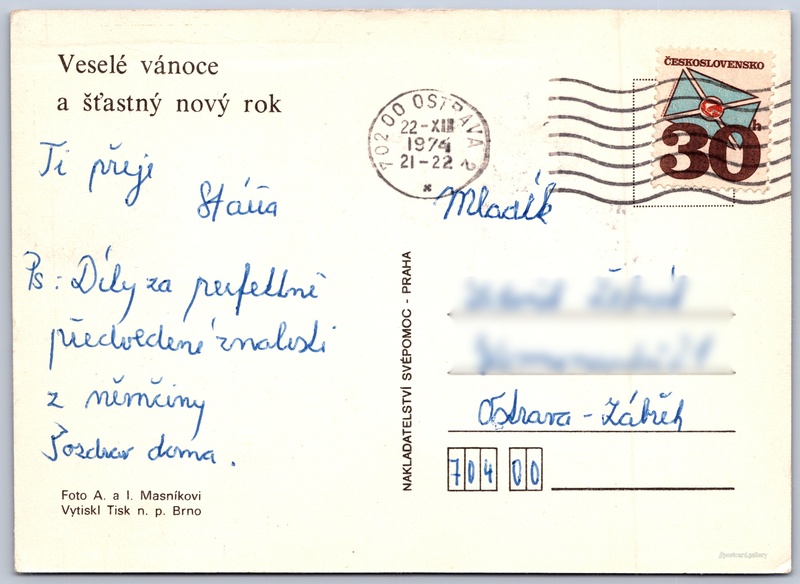 Veselé vánoce
a šťastný nový rok
Ti přeje
Stáňa
Ps: Díky za perfektně
předvedené znalosti
z němčiny
Pozdrav doma.
Foto A. a I. Masníkovi
Vytiskl Tisk n. p. Brno
NAKLADATELSTVÍ SVÉPOMOC - PRAHA
702 00 OSTRAVA 2
22-XII
1974
21-22
ČESKOSLOVENSKO
30h
Mladík
Ostrava - Zábřeh
704 00